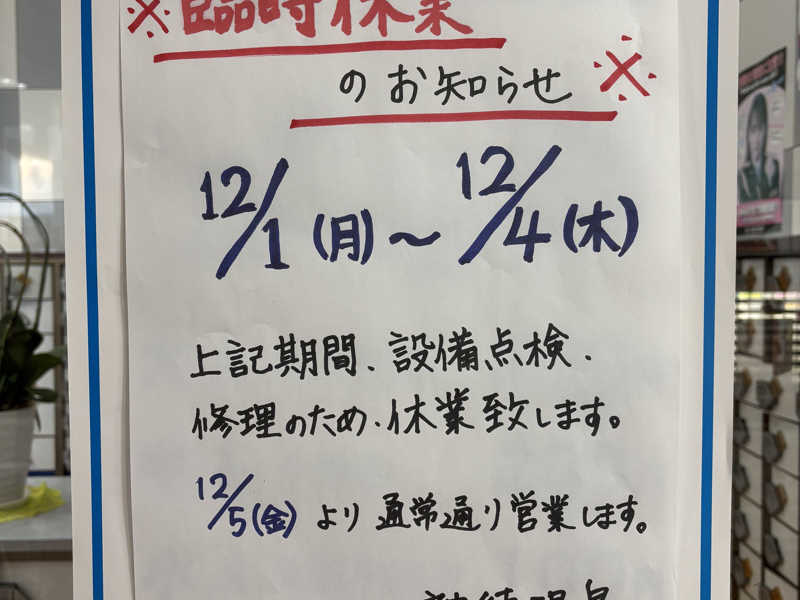 ※臨時休業
のお知らせ※
12/1(月)～12/4(木)
上記期間、設備点検、
修理のため、休業致します。
12/5(金)より通常通り営業します。